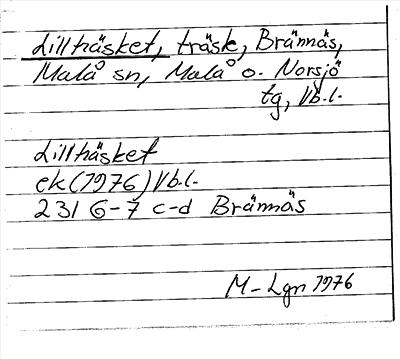 Lillträsket, träsk, Brännäs,
Malå sn, Malå o. Norsjö
tg, Vb.l.
Lillträsket
ek (1976) Vb.l.
231 6-7 c-d Brännäs
M-Lgn 1976